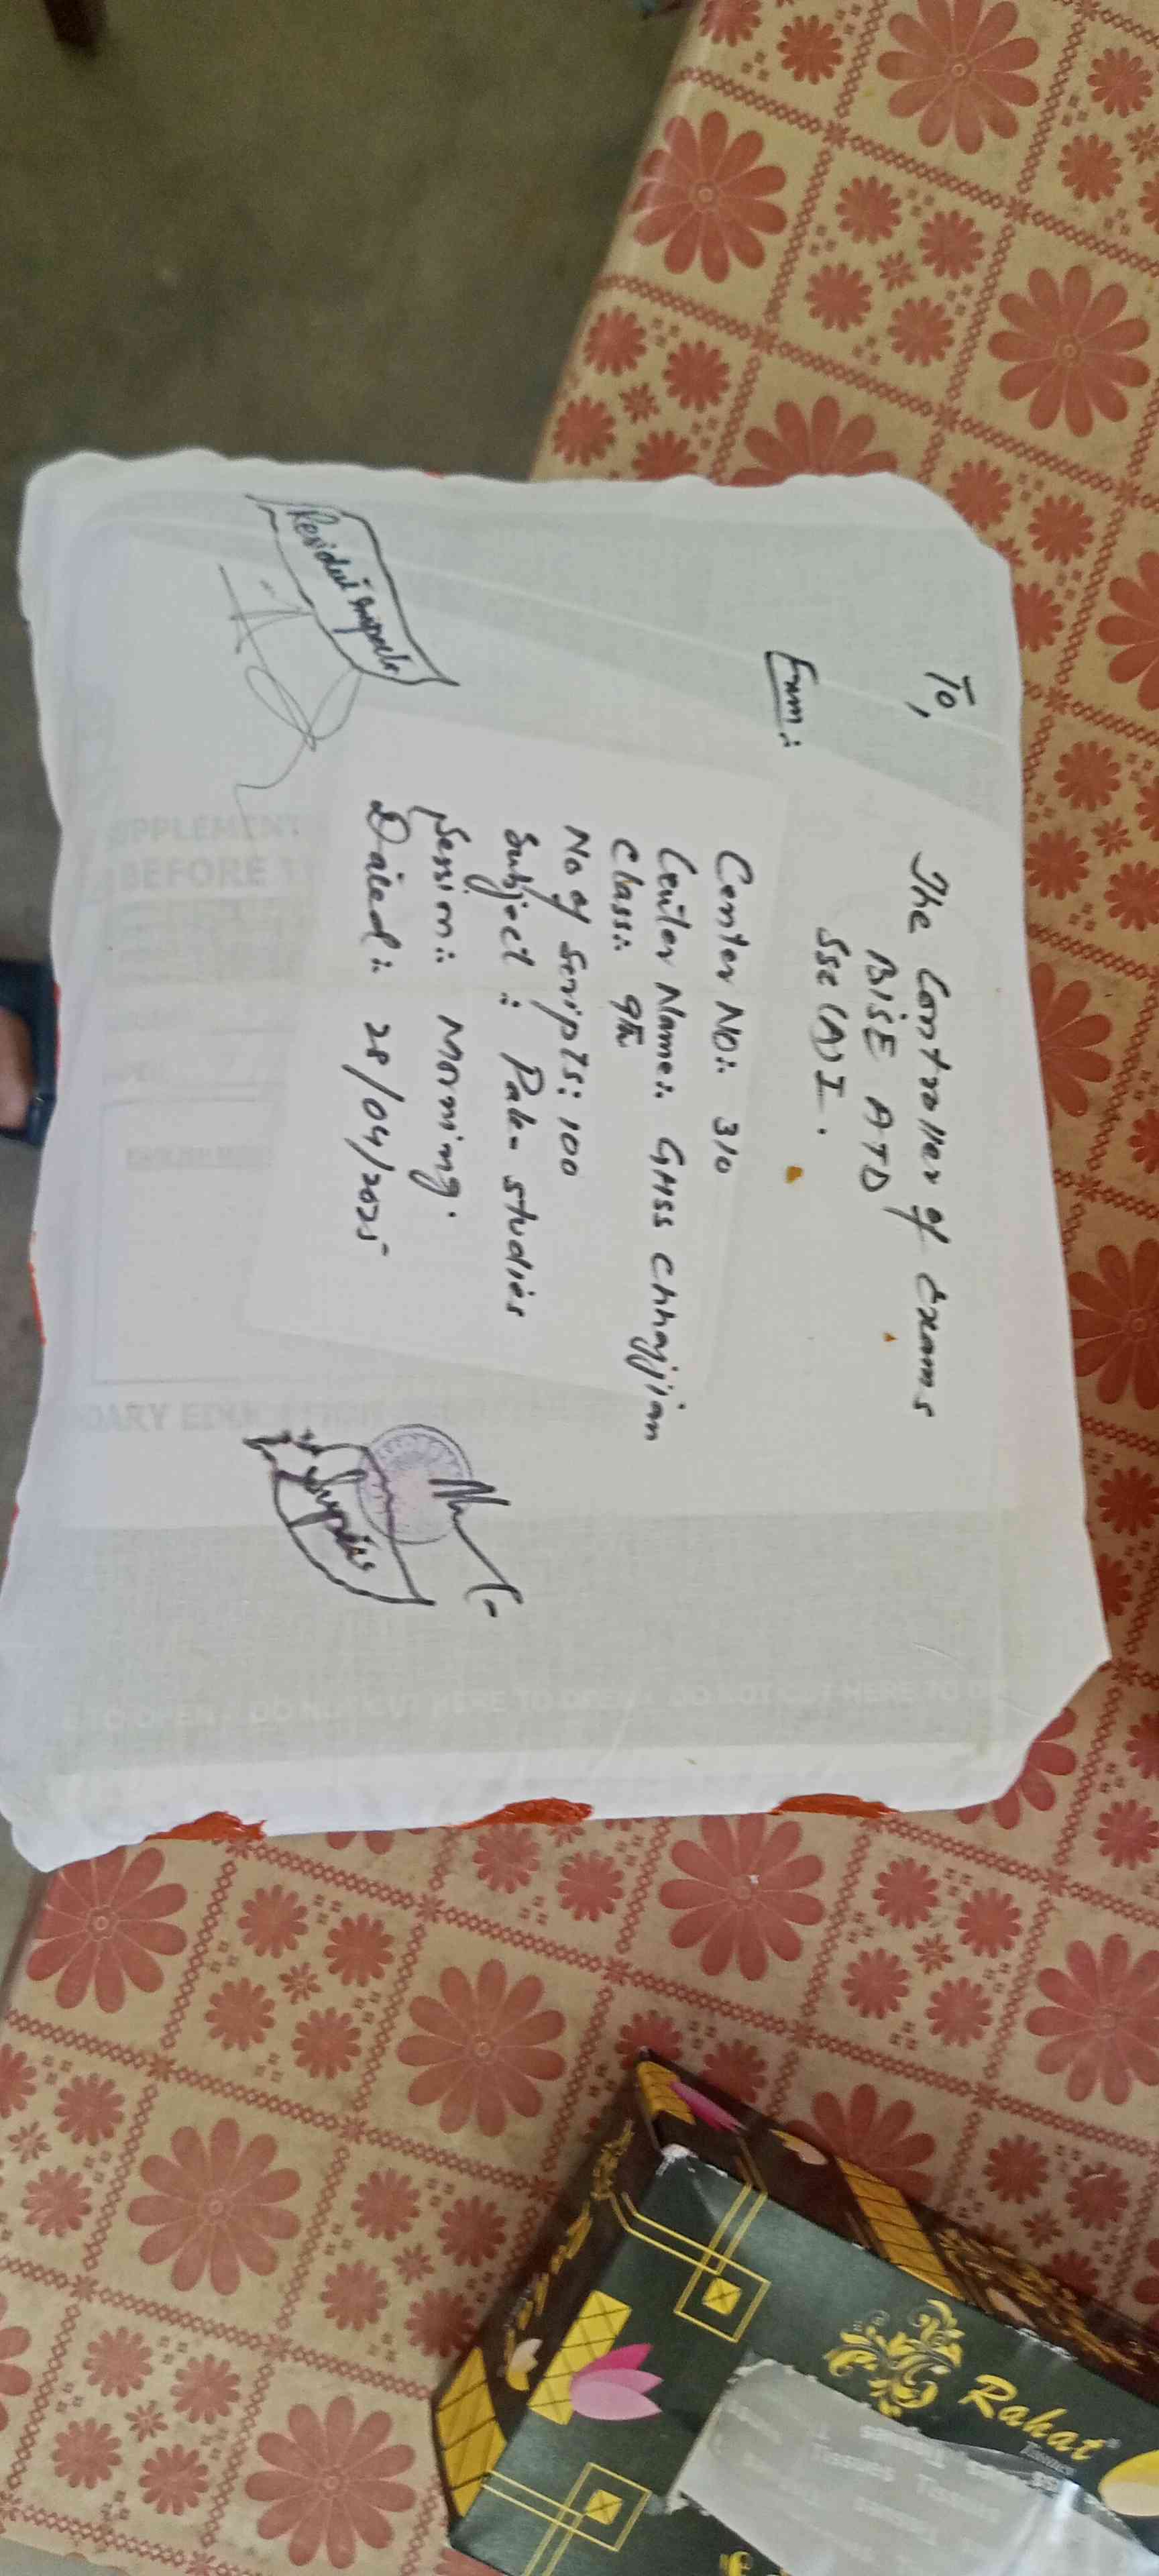 To,
The Controller of Exams
BISE ATD
SSC (A) I.
From:
Center No: 310
Center Name: GHSS Chhajjian
Class: 9th
No of Scripts: 100
Subject: Pak-studies
Session: Morning.
Dated: 28/04/2025
UPPLEMENT
BEFORE
DARY EDUCATION
E TO OPEN DO NOT CUT HERE TO OPEN DO NOT CUT HERE TO
Rahat
Tissues